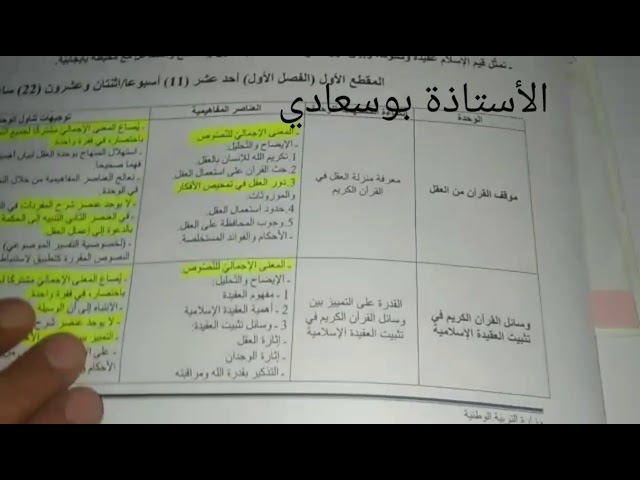 ـ تمثل قيم الإسلام عقيدة
المقطع الأول (الفصل الأول) أحد عشر (11) أسبوعا/اثنتان وعشرون (22)
الأستاذة بوسعادي
الوحدة
العناصر المفاهيمية
توجيهات تناول
موقف القرآن من العقل
معرفة منزلة العقل في
القرآن الكريم
ـ المعنى الإجمالي للنّصوص
ـ الإيضاح والتّحليل:
1. تكريم الله للإنسان بالعقل.
2. حث القرآن على استعمال العقل.
3. دور العقل في تمحيص الأفكار
والموروثات.
4. حدود استعمال العقل.
5. وجوب المحافظة على العقل.
ـ الأحكام والفوائد المستخلصة.
ـ يُصاغ المعنى الإجمالي مشتركا لجميع
باختصار، في فقرة واحدة.
ـ استهلال المنهاج بوحدة العقل لبيان
فهما صحيحا.
ـ تعالج العناصر المفاهيمية من خلال
في الوحدة.
ـ لا يوجد عنصر شرح المفردات في
ـ في العنصر الثاني التنبيه إلى الحكمة
بالدعوة إلى إعمال العقل.
ـ (لخصوصية التفسير الموضوعي)
النصوص المقررة كتطبيق لاستنباط
وسائل القرآن الكريم في
تثبيت العقيدة الإسلامية
القدرة على التمييز بين
وسائل القرآن الكريم في
تثبيت العقيدة الإسلامية
ـ المعنى الإجمالي للنّصوص
ـ الإيضاح والتّحليل:
1 - مفهوم العقيدة
2 - أهمية العقيدة الإسلامية
3 - وسائل تثبيت العقيدة:
ـ إثارة العقل
ـ إثارة الوجدان
ـ التذكير بقدرة الله ومراقبته
ـ يُصاغ المعنى الإجمالي مشتركا
باختصار، في فقرة واحدة.
ـ الانتباه إلى أن الوسيلة
ـ لا يوجد عنصر شرح
التمييز بين
ـ على
الأحكام
وزارة التربية الوطنية